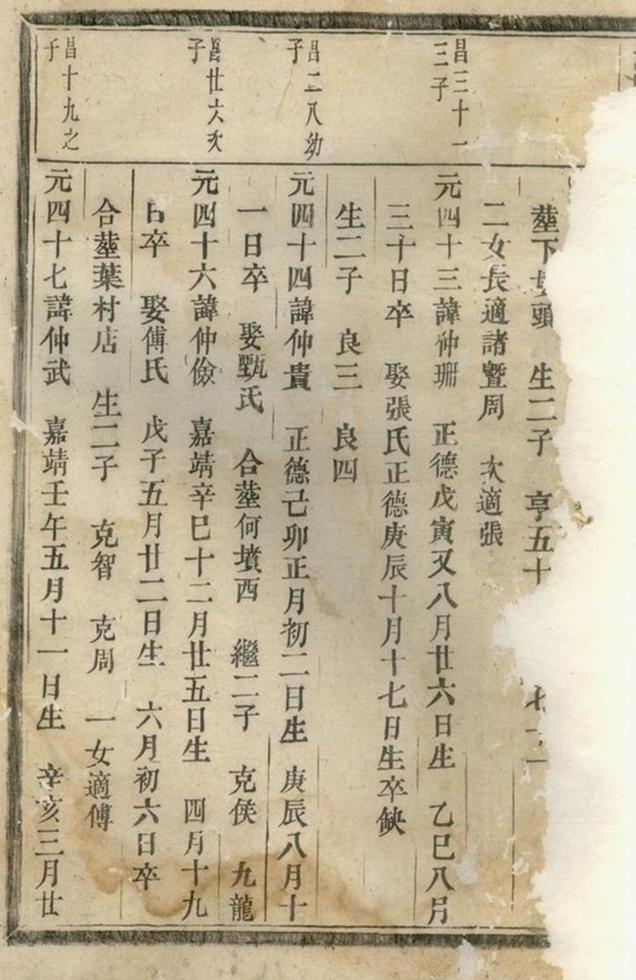 塟下墳頭　生二子　亨五十
二女長適諸暨周　次適張
昌三十一
三子
元四十三諱仲珊　正德戊寅又八月廿六日生　乙巳八月
三十日卒　娶張氏正德庚辰十月十七日生卒缺
生二子　良三　良四
昌二八幼
子
元四十四諱仲貴　正德己卯正月初二日生　庚辰八月十
一日卒　娶甄氏　合塟何墳西　繼二子　克侯　九龍
昌廿六次
子
元四十六諱仲儉　嘉靖辛巳十二月廿五日生　四月十九
日卒　娶傅氏　戊子五月廿二日生　六月初六日卒
合塟葉村店　生二子　克智　克周　一女適傅
昌十九之
子
元四十七諱仲武　嘉靖壬午五月十一日生　辛亥三月廿